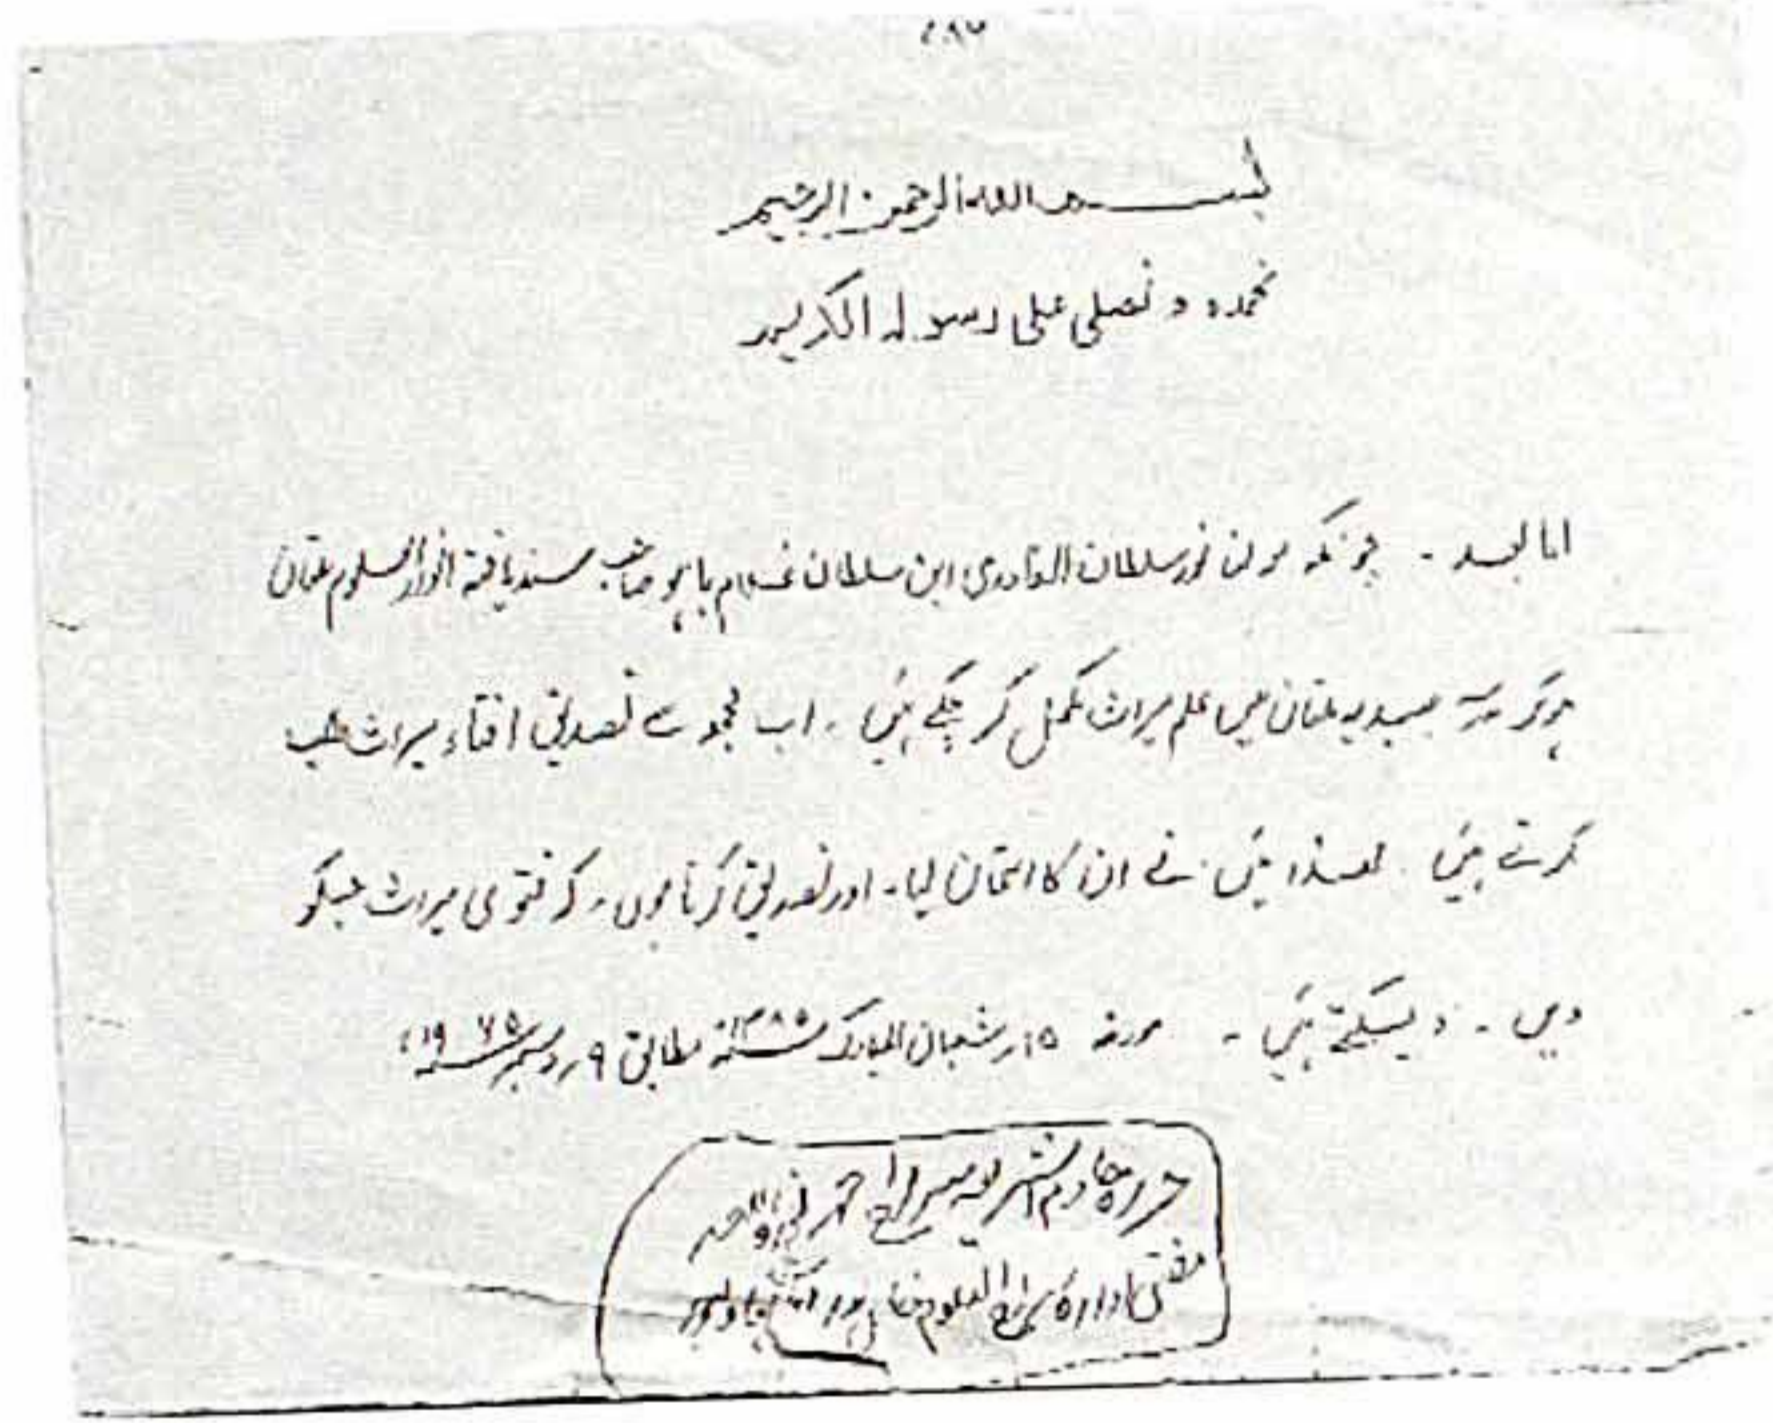 ۷۸۶
بسم الله الرحمن الرحیم
نحمده و نصلی علی رسوله الکریم
اما بعد ۔ چونکہ مولن نور سلطان القادری ابن سلطان غلام باہو صاحب سند یافتہ انوار العلوم ملتان
ہوکر مدرسہ عبیدیہ ملتان میں علم میراث مکمل کر چکے ہیں ۔ اب مجھ سے تصدیق افتاء میراث طلب
کرتے ہیں ۔ لھذا میں نے ان کا امتحان لیا ۔ اور تصدیق کرتا ہوں ۔ کہ فتوی میراث جسکو
دیں ۔ دیسکتے ہیں ۔ مورخہ ۱۵ر شعبان المبارک ۱۳۸۵ھ مطابق ۹ر دسمبر ۱۹۶۵ء
حررہ خادم الشریعہ سراج احمد
مفتی ادارہ سراج العلوم خان پور بہاولپور